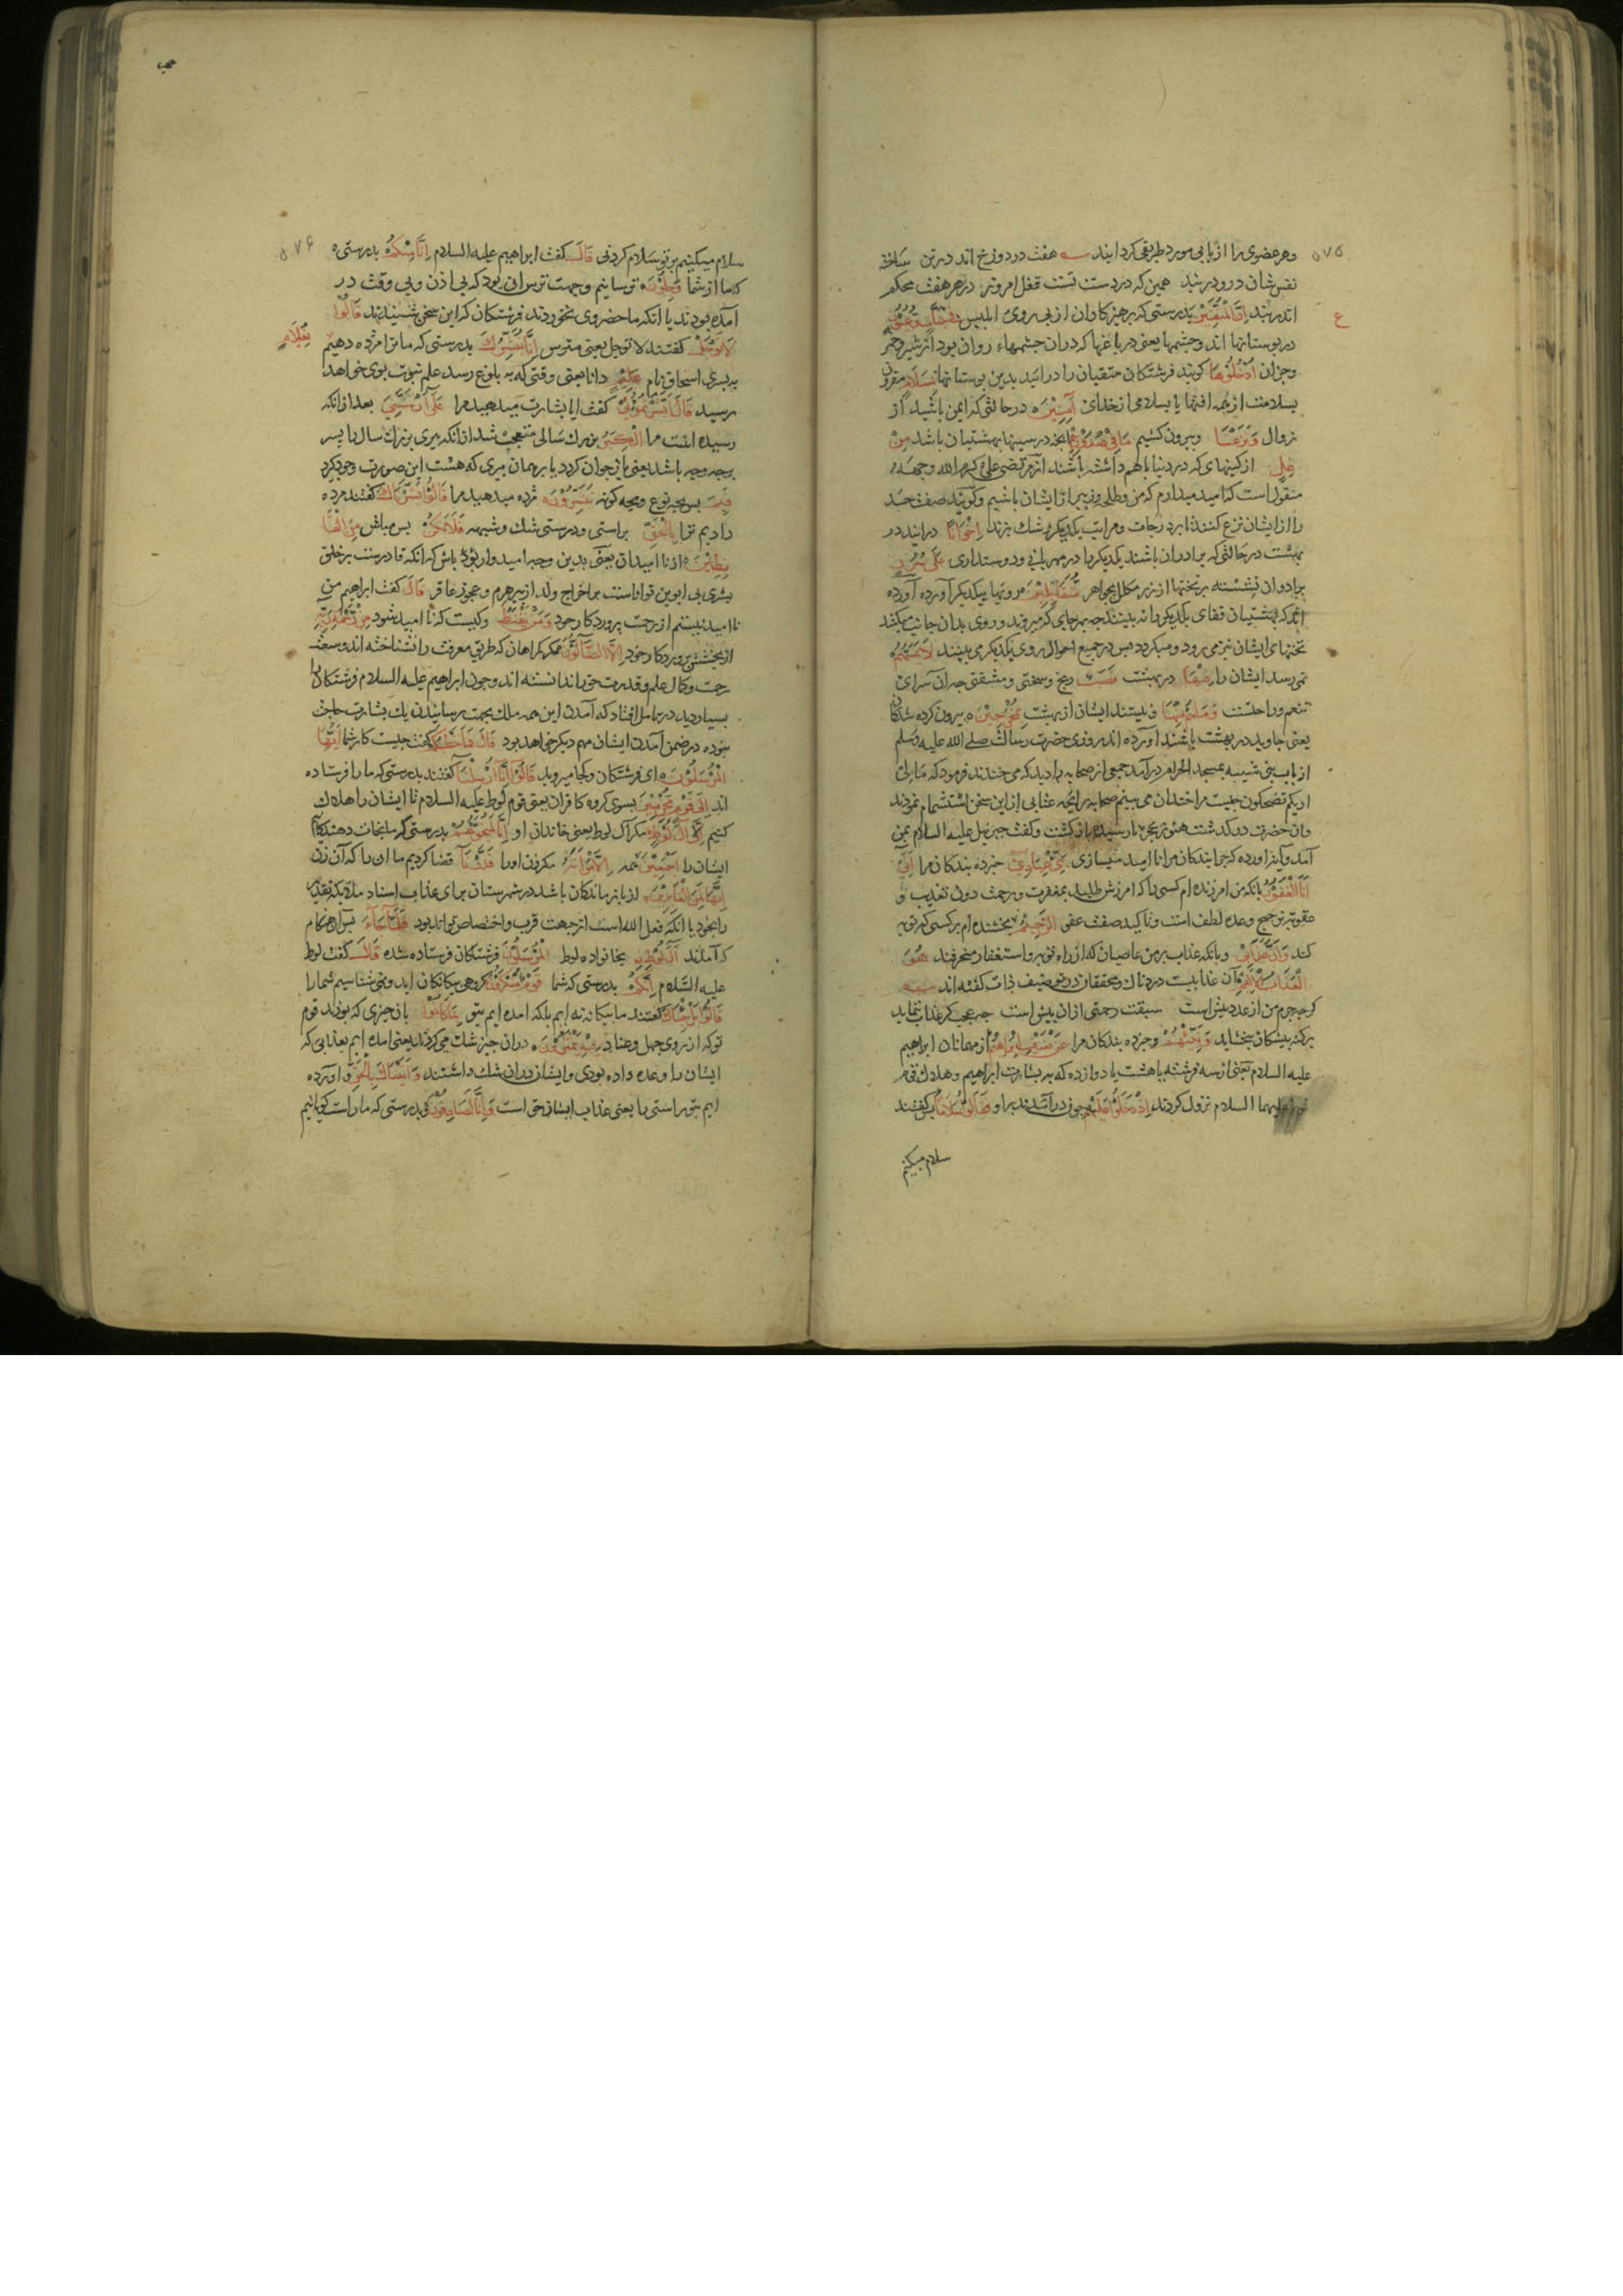 ۵۷۵
وهر عضوی را از بابی مورد طریقی کردانیند هفت در دوزخ اند در تن ساخته
نفس شان در و دربند همین که در دست تست قفل امروز در هر هفت محکم
اندر بند اِنَّ الْمُتَّقِیْنَ بدرستی که پرهیزکاران از پی روی ابلیس فِیْ جَنّٰتٍ وَّعُیُوْنٍ
ع
در بوستانها اند وچشمها یعنی در باغها که دران چشمهاء روان بود از شیر وخمر
وجزان اُدْخُلُوْهَا کویند فرشتکان متقیان را درائید بدین بوستانها بِسَلَامٍ مقرون
بسلامت از همه افتها یا بسلامی از خدای اٰمِنِیْنَ در حالتی که ایمن باشید از
زوال وَنَزَعْنَا وبیرون کشیم مَا فِیْ صُدُوْرِهِمْ انچه در سینهای بهشتیان باشد مِّنْ
غِلٍّ از کینهای که در دنیا باهم داشته باشند از مرتضی علی کرم الله وجهه
منقول است که امید میدارم که من وطلحه وزبیر از ایشان باشیم وکویند صفت حسد
را از ایشان نزع کنند تا بر درجات ومراتب یکدیکر رشک نبرند اِخْوَانًا درایند در
بهشت در حالتی که برادران باشند یکدیکر را در مهربانی ودوستداری عَلٰی سُرُرٍ
برادران نشسته بر تختها از زر مکلل بجواهر مُّتَقٰبِلِیْنَ رویها بیکدیکر آورده آورده
اند که بهشتیان قفای یکدیکر را نه بینند چه بهر جای که میروند وروی بدان جانب میکنند
تختهای ایشان نیز می رود ومیکردد پس در جمیع احوال روی یکدیکر می بینند لَا یَمَسُّهُمْ
نمی رسد ایشان را فِیْهَا در بهشت نَصَبٌ رنج وسختی ومشقتی چه ان سرای
تنعم وراحتست وَّمَا هُمْ مِّنْهَا ونیستند ایشان از بهشت بِمُخْرَجِیْنَ بیرون کرده شدکان
یعنی جاوید در بهشت باشند آورده اند روزی حضرت رسالت صلی الله علیه وسلم
از باب بنی شیبه بمسجد الحرام درآمد جمعی از صحابه را دید که می خندند فرمود که مالی
اریکم تضحکون چیست مرا خندان می بینم صحابه رایحه عتابی از این سخن استشمام نمودند
وان حضرت در گذشت هنوز بحجره نا رسیده باز کشت وکفت جبرئیل علیه السلام بمن
آمد وپیغام اورده که چرا بندکان مرا نا امید میسازی نَبِّئْ عِبَادِیْ خبر ده بندکان مرا اَنِّیْ
اَنَا الْغَفُوْرُ بانکه من امرزنده ام کسی را که امرزش طلبد بمغفرت ورحمت دون تعذیب و
عقوبت ترجیح وعده لطف است وتاکید صفت عفو الرَّحِیْمُ بخشنده ام بر کسی که توبه
کند وَاَنَّ عَذَابِیْ وبانکه عذاب بر من عاصیان که از راه توبه واستغفار منحرفند هُوَ
الْعَذَابُ الْاَلِیْمُ آن عذابیست دردناک ومحققان در توصیف ذات کفته اند
کر چه جرم من از عدد بیش است سبقت رحمتی ازان بیش است چه عجب کر عذاب ننماید
بر کنه پیشکان ببخشاید وَنَبِّئْهُمْ وخبر ده بندکان مرا عَنْ ضَیْفِ اِبْرٰهِیْمَ از مهمانان ابراهیم
علیه السلام یعنی از سه فرشته یا هشت یا دوازده که به بشارت ابراهیم وهلاک قوم
لوط علیهما السلام نزول کردند اِذْ دَخَلُوْا عَلَیْهِ چون درآمدند براو فَقَالُوْا سَلٰمًا پس کفتند
سلام میکنیم
۵۷۶
سلام میکنیم بر تو سلام کردنی قَالَ کفت ابراهیم علیه السلام اِنَّا مِنْکُمْ بدرستی
که ما از شما وَجِلُوْنَ ترسانیم وجهت ترس ان بود که بی اذن وبی وقت در
آمده بودند یا آنکه ماحضر وی نخوردند فرشتکان که این سخن شنیدند قَالُوْا
لَا تَوْجَلْ کفتند لا توجل یعنی مترس اِنَّا نُبَشِّرُکَ بدرستی که ما ترا مژده دهیم بِغُلَامٍ
به پسری اسحاق نام عَلِیْمٍ دانا یعنی وقتی که به بلوغ رسد علم نبوت بوی خواهد
رسید قَالَ اَبَشَّرْتُمُوْنِیْ کفت ایا بشارت میدهید مرا عَلٰی اَنْ مَّسَّنِیَ بعد ازانکه
رسیده است مرا الْکِبَرُ بزرک سالی متعجب شد ازانکه پیری بزرک سال را پسر
بر چه وجه باشد یعنی باز جوان کردد یا بر همان پیری که هست این صورت وجود کیرد
فَبِمَ پس بچه نوع وبچه کونه تُبَشِّرُوْنَ مژده میدهید مرا قَالُوْا بَشَّرْنٰکَ کفتند مژده
دادیم ترا بِالْحَقِّ براستی ودرستی شک وشبهه فَلَا تَکُنْ پس مباش مِّنَ الْقٰـ
ـنِطِیْنَ از نا امیدان یعنی بدین وجه امیدوار بوده باش که آنکه قادر ست بر خلق
بشری بی ابوین تواناست بر اخراج ولد از پیر هرم وعجوز عاقر قَالَ کفت ابراهیم من
نا امید نیستم از رحمت پروردکار خود وَمَنْ یَّقْنَطُ وکیست که نا امید شود مِنْ رَّحْمَةِ رَبِّهٖ
از بخشش پروردکار خود اِلَّا الضَّآلُّوْنَ مکر کمراهان که طریق معرفت را نشناخته اند وسعت
رحمت وکمال علم وقدرت حق را ندانسته اند وچون ابراهیم علیه السلام فرشتکان را
بسیار دید در تامل افتاد که آمدن این همه ملک بجهت رسانیدن یک بشارت حاجت
نبوده در ضمن آمدن ایشان مهم دیکر خواهد بود قَالَ فَمَا خَطْبُکُمْ کفت چیست کار شما اَیُّهَا
الْمُرْسَلُوْنَ ای فرشتکان وکجا میروید قَالُوْٓا اِنَّآ اُرْسِلْنَا کفتند بدرستی که ما را فرستاده
اند اِلٰی قَوْمٍ مُّجْرِمِیْنَ بسوی کروه کافران یعنی قوم لوط علیه السلام تا ایشان را هلاک
کنیم اِلَّآ اٰلَ لُوْطٍ مکر آل لوط یعنی خاندان او اِنَّا لَمُنَجُّوْهُمْ بدرستی که ما نجات دهندکانیم
ایشان را اَجْمَعِیْنَ همه اِلَّا امْرَاَتَهٗ مکر زن اورا قَدَّرْنَآ قضا کردیم ما ان را که آن زن
اِنَّهَا لَمِنَ الْغٰبِرِیْنَ از باز ماندکان باشد در شهرستان برای عذاب اسناد ملایکه تقدیر
را بخود با آنکه فعل الله است از جهت قرب واختصاص تواند بود فَلَمَّا جَآءَ پس آن هنکام
که آمدند اٰلَ لُوْطِ بخانواده لوط الْمُرْسَلُوْنَ فرشتکان فرستاده شده قَالَ کفت لوط
علیه السلام اِنَّکُمْ بدرستی که شما قَوْمٌ مُّنْکَرُوْنَ کروهی بیکانکان اید ومن نمی شناسیم شما را
قَالُوْا بَلْ جِئْنٰکَ کفتند ما بیکانه نه ایم بلکه امده ایم بتو بِمَا کَانُوْا بان چیزی که بودند قوم
تو که از روی جهل وعناد فِیْهِ یَمْتَرُوْنَ دران چیز شک می کردند یعنی امده ایم بعذابی که
ایشان را وعده داده بودی وایشان دران شک داشتند وَاَتَیْنٰکَ بِالْحَقِّ واورده
ایم بتو براستی را یعنی عذاب ایشان حق است وَاِنَّا لَصٰدِقُوْنَ وبدرستی که ما راست کویانیم